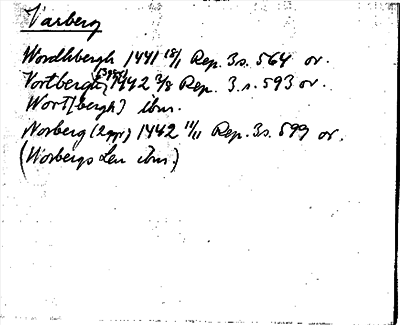 Varberg
Wordhbergh 1441 18/11 Rep. 3 s. 564 or.
Vortbergh 1442 2/8 Rep. 3. s. 593 or.
Wort[bergh] ibm.
Worberg (2 ggr) 1442 11/11 Rep. 3 s. 599 or.
(Worbergs Len ibm.)